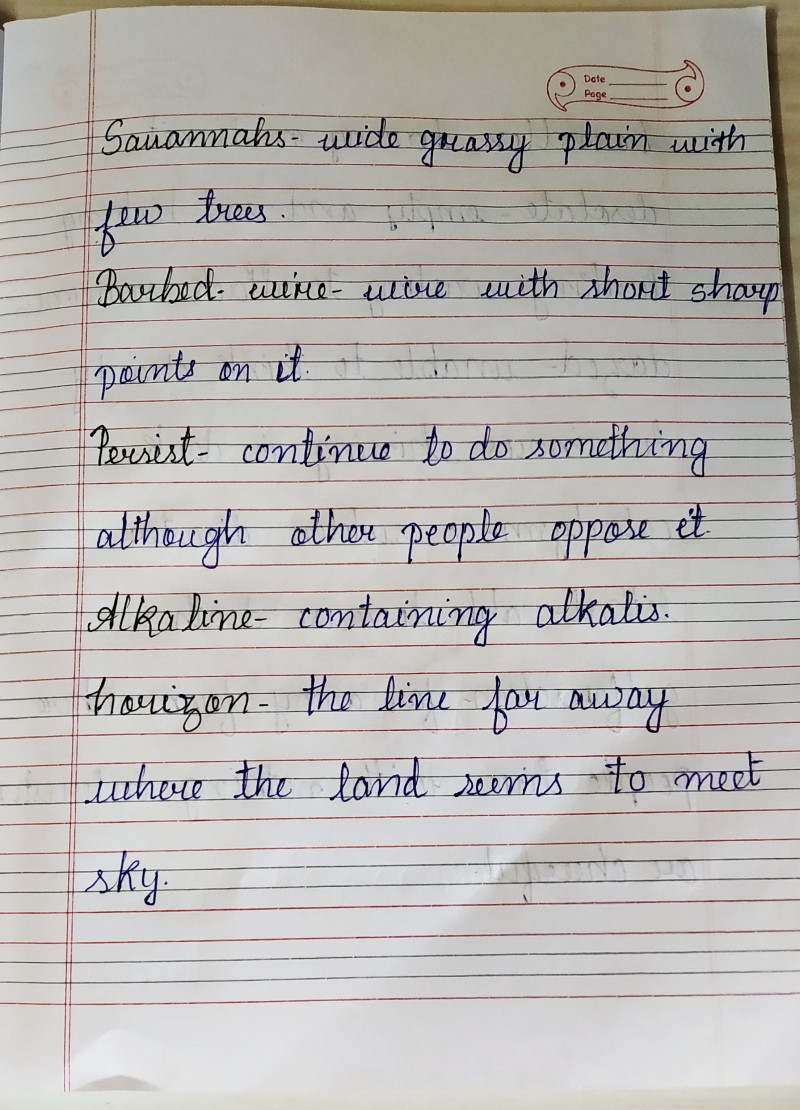 Date
Page
Savannahs- wide grassy plain with
few trees.
Barbed- wire- wire with short sharp
points on it.
Persist- continue to do something
although other people oppose it.
Alkaline- containing alkalis.
horizon- the line far away
where the land seems to meet
sky.